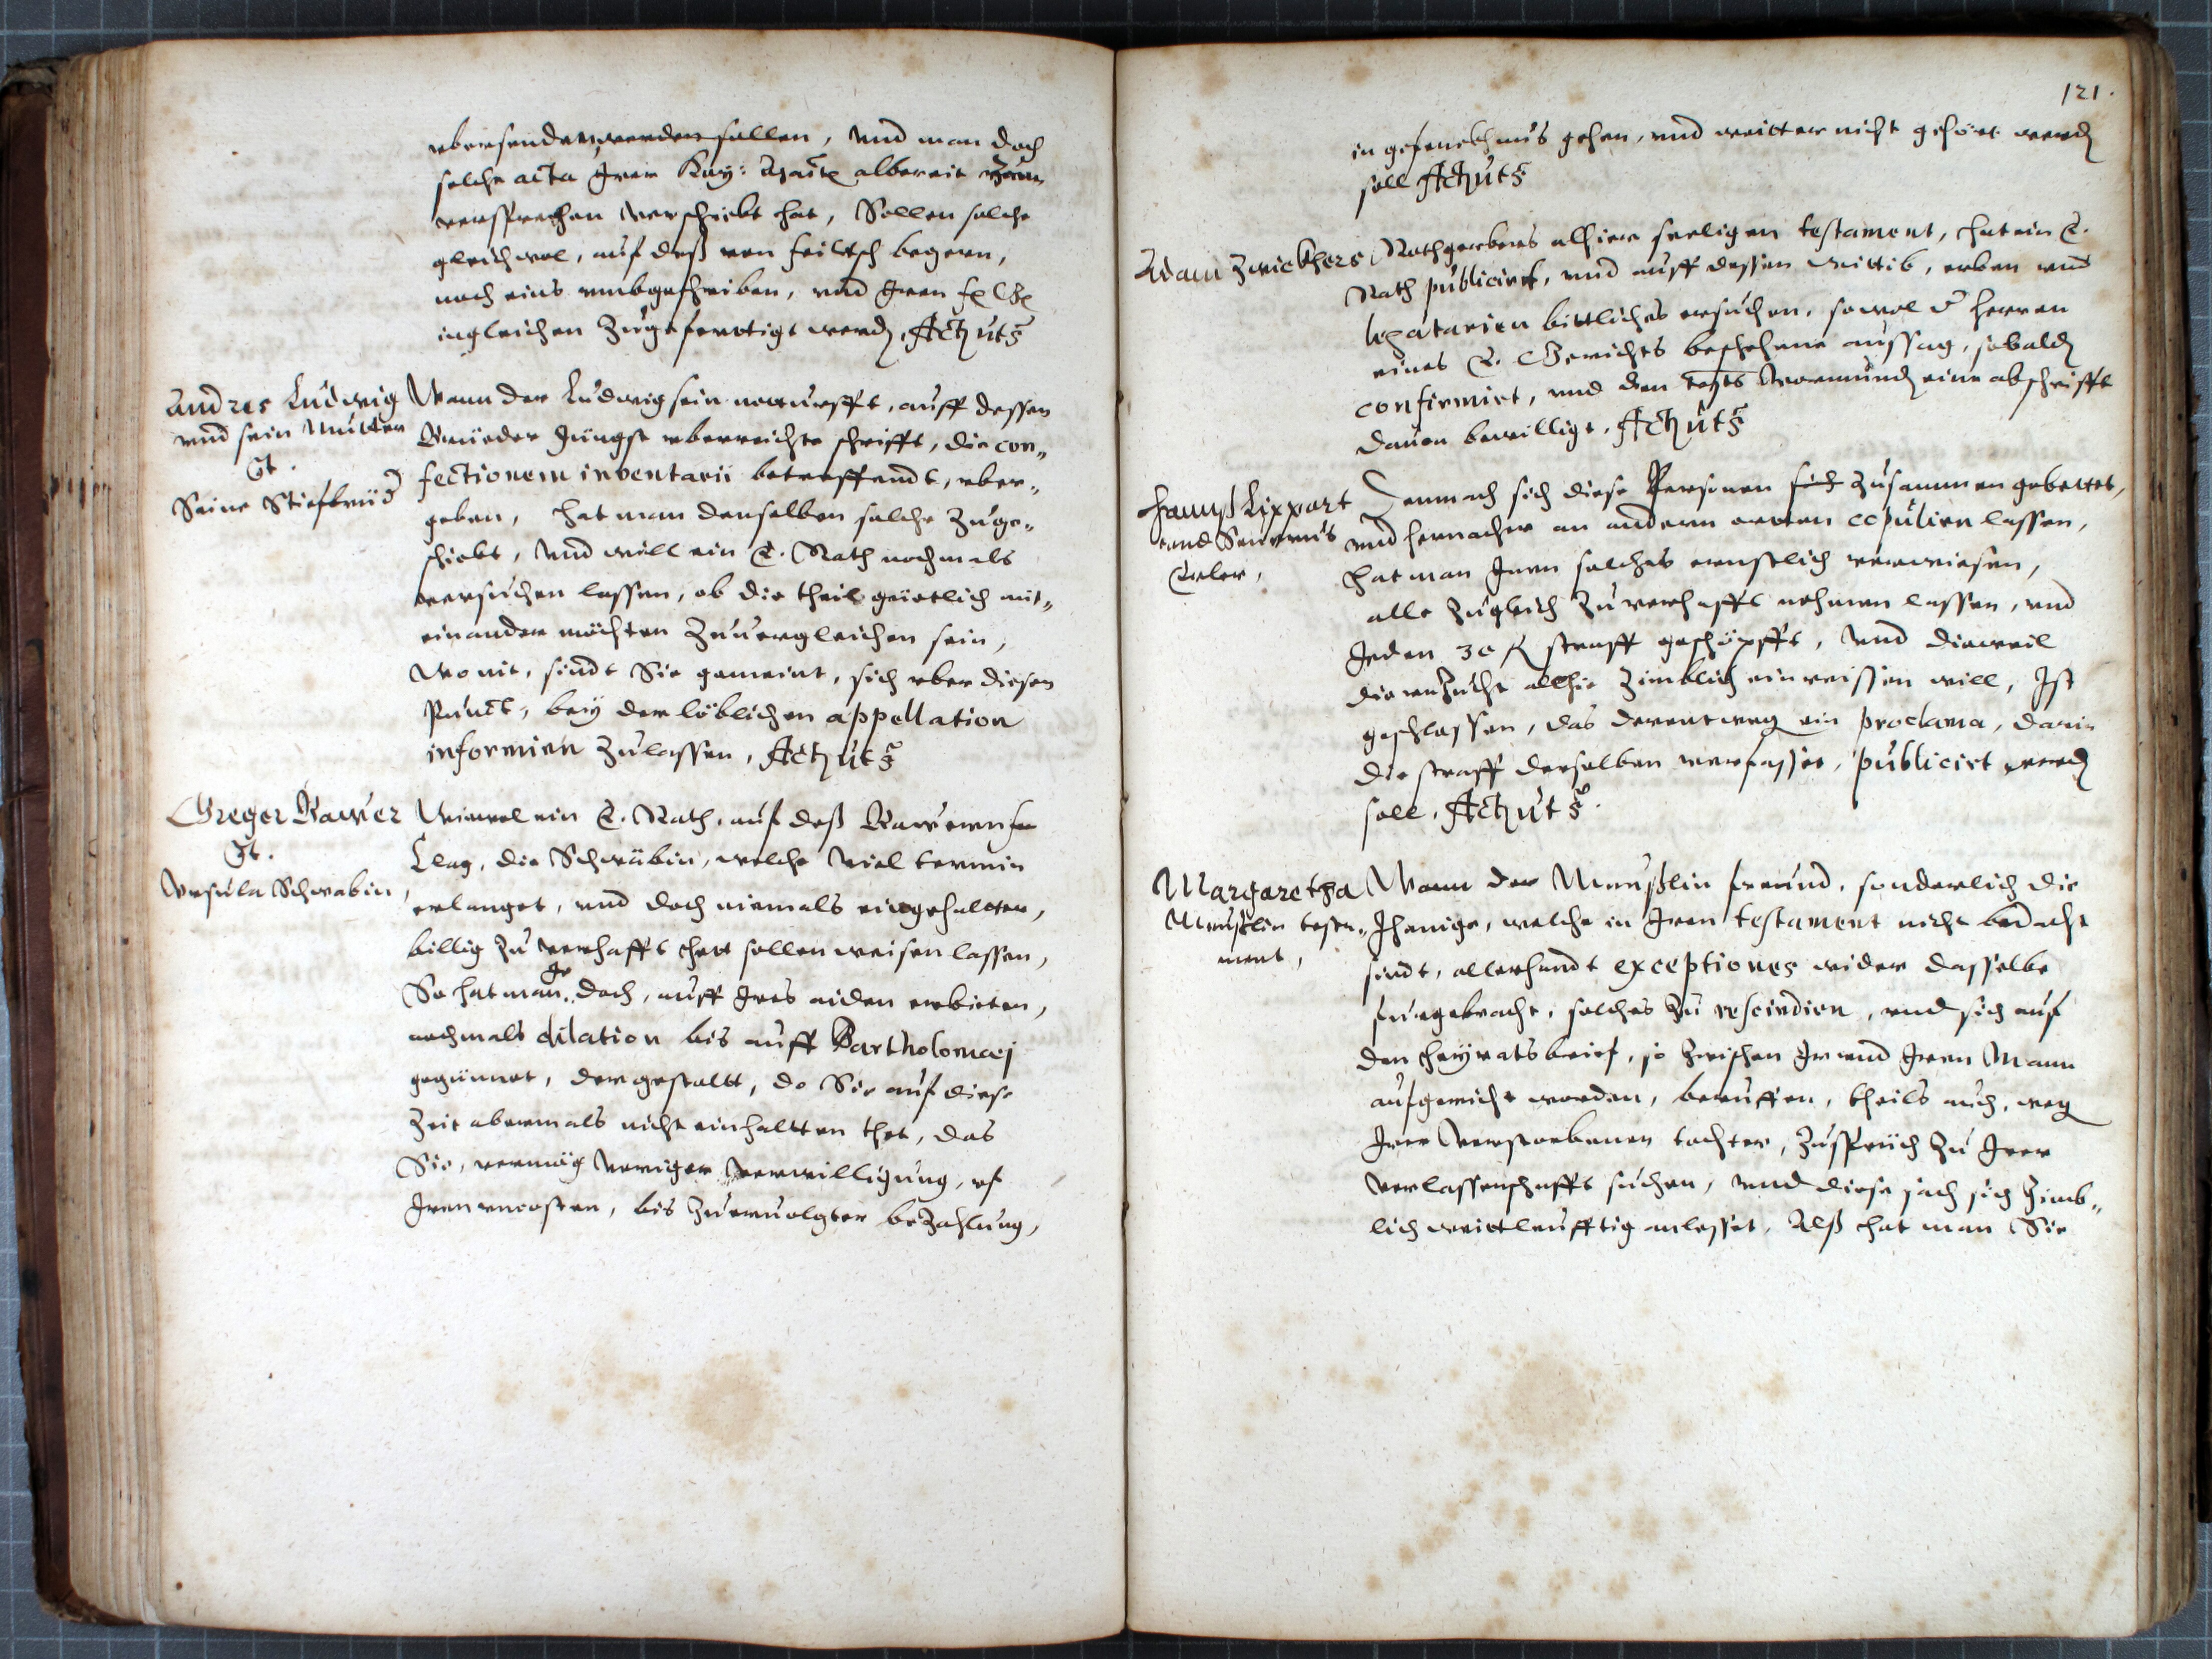 vbersendet werden sollen, vnd man doch
solche acta Irer Kay: Maĩt albereit zum
versprechen verschickt hat, Sollen solche
gleichwol, auf deß von feiltsch begern,
noch eins vmbgeschriben, vnd Iren
ingleichen zugefertigt werd, Act ut s
Andres Ludwig
vnd sein Mutter
Ct.
Seine Stiefbrüd
Wann der Ludwig sein notturfft, auff dessen
Brüeder Jüngst vberreichte schrifft, die con„
fectionem inventarii betreffendt, vber„
geben, hat man denselben solche zuge„
schickt, vnd will ein E. Rath nochmals
versuchen lassen, ob die theil güetlich mit„
einander möchten zuuergleichen sein,
Wo nit, sindt Sie gemeint, sich vber diesen
Punct, bey der löblichen appellation
informirn zulassen, Act ut s
Greger Bawer
Ct.
Vrsula Schwabin,
Wiewol ein E. Rath, auf deß Bawern
Clag, die Schwäbin, welche viel termin
erlanget, vnd doch niemals eingehaltten,
billig zu verhafft hett sollen weisen lassen,
So hat man Ir doch, auff Ires aiden erbieten,
nochmals dilation bis auff Bartholomaej
gegünnet, der gestaltt, do Sie auf diese
Zeit abermals nicht einhaltten thet, das
Sie, vermög voriger verwilligung, vf
Iren vncosten, bis zueruolgter bezahlung,
121.
in gefencknus gehen, vnd weitter nicht gehört werd
soll Act ut s
Adam Zwickhers
Rothgerbers alhier seeligen testament, hat ein E.
Rath publicirt, vnd auff dessen wittib, erben vnd
legatarien bittliches ersuchen, sowol d herren
eines E. Gerichts beschehene aussag, sobald
confirmirt, vnd den Vormund eine abschrifft
dauon bewilligt. Act ut s
Hannß Lippart
vnd
Demnach sich diese Personen sich zusammen gebettet,
vnd hernacher an andern orten copulirn lassen,
hat man Inen solches ernstlich verwiesen,
alle zugleich zu verhafft nehmen lassen, vnd
Jeden 30 straff geschöpfft, vnd dieweil
die vnzucht alhie zimblich einreissen will, Ist
geschlossen, das derentweg ein proclama, darin
die straff derselben verfasset, publicirt werd
soll. Act ut s.
Margaretha
Meußlin testa„
ment,
Wann der Meußlin freund, sonderlich die
Jhenige, welche in Iren testament nicht bedacht
sindt, allerhandt exceptiones wider dasselbe
furgebracht, solches zu rescindirn, vnd sich auf
den heyratsbrief, so zwischen Ir vnd Iren Mann
aufgericht worden, beruffen, theils auch, weg
Irer verstorbenen tochter, zusprüch zu Irer
verlassenschafft suchen, vnd diese sach sich zimb„
lich weittleufftig anlesset, Alß hat man Sie